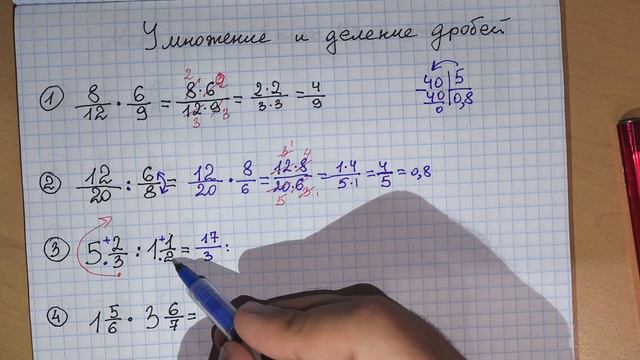 Умножение и деление дробей
① 8/12 · 6/9 = 8·6/12·9 = 2·2/3·3 = 4/9
40 | 5
40 | 0,8
0
② 12/20 : 6/8 = 12/20 · 8/6 = 12·8/20·6 = 1·4/5·1 = 4/5 = 0,8
③ 5 2/3 : 1 1/2 = 17/3 :
④ 1 5/6 · 3 6/7 =